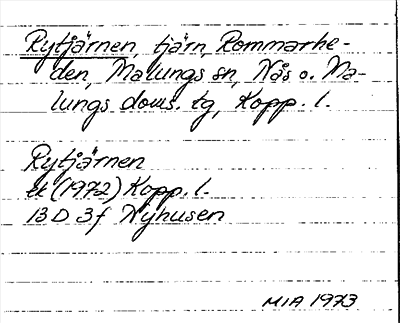 Rytjärnen, tjärn, Rommarhe-
den, Malungs sn, Nås o. Ma-
lungs doms. tg, Kopp. l.
Rytjärnen
ek (1972) Kopp. l.
13 D 3f Nyhusen
MIA 1973